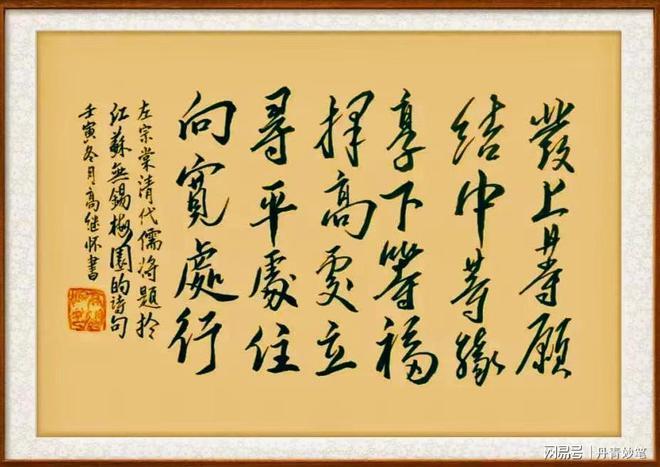 發上等願
結中等緣
享下等福
擇高處立
尋平處住
向寬處行
左宗棠清代儒將題於
江蘇無錫梅園的詩句
壬寅冬月高继怀書
网易号 | 丹青妙笔